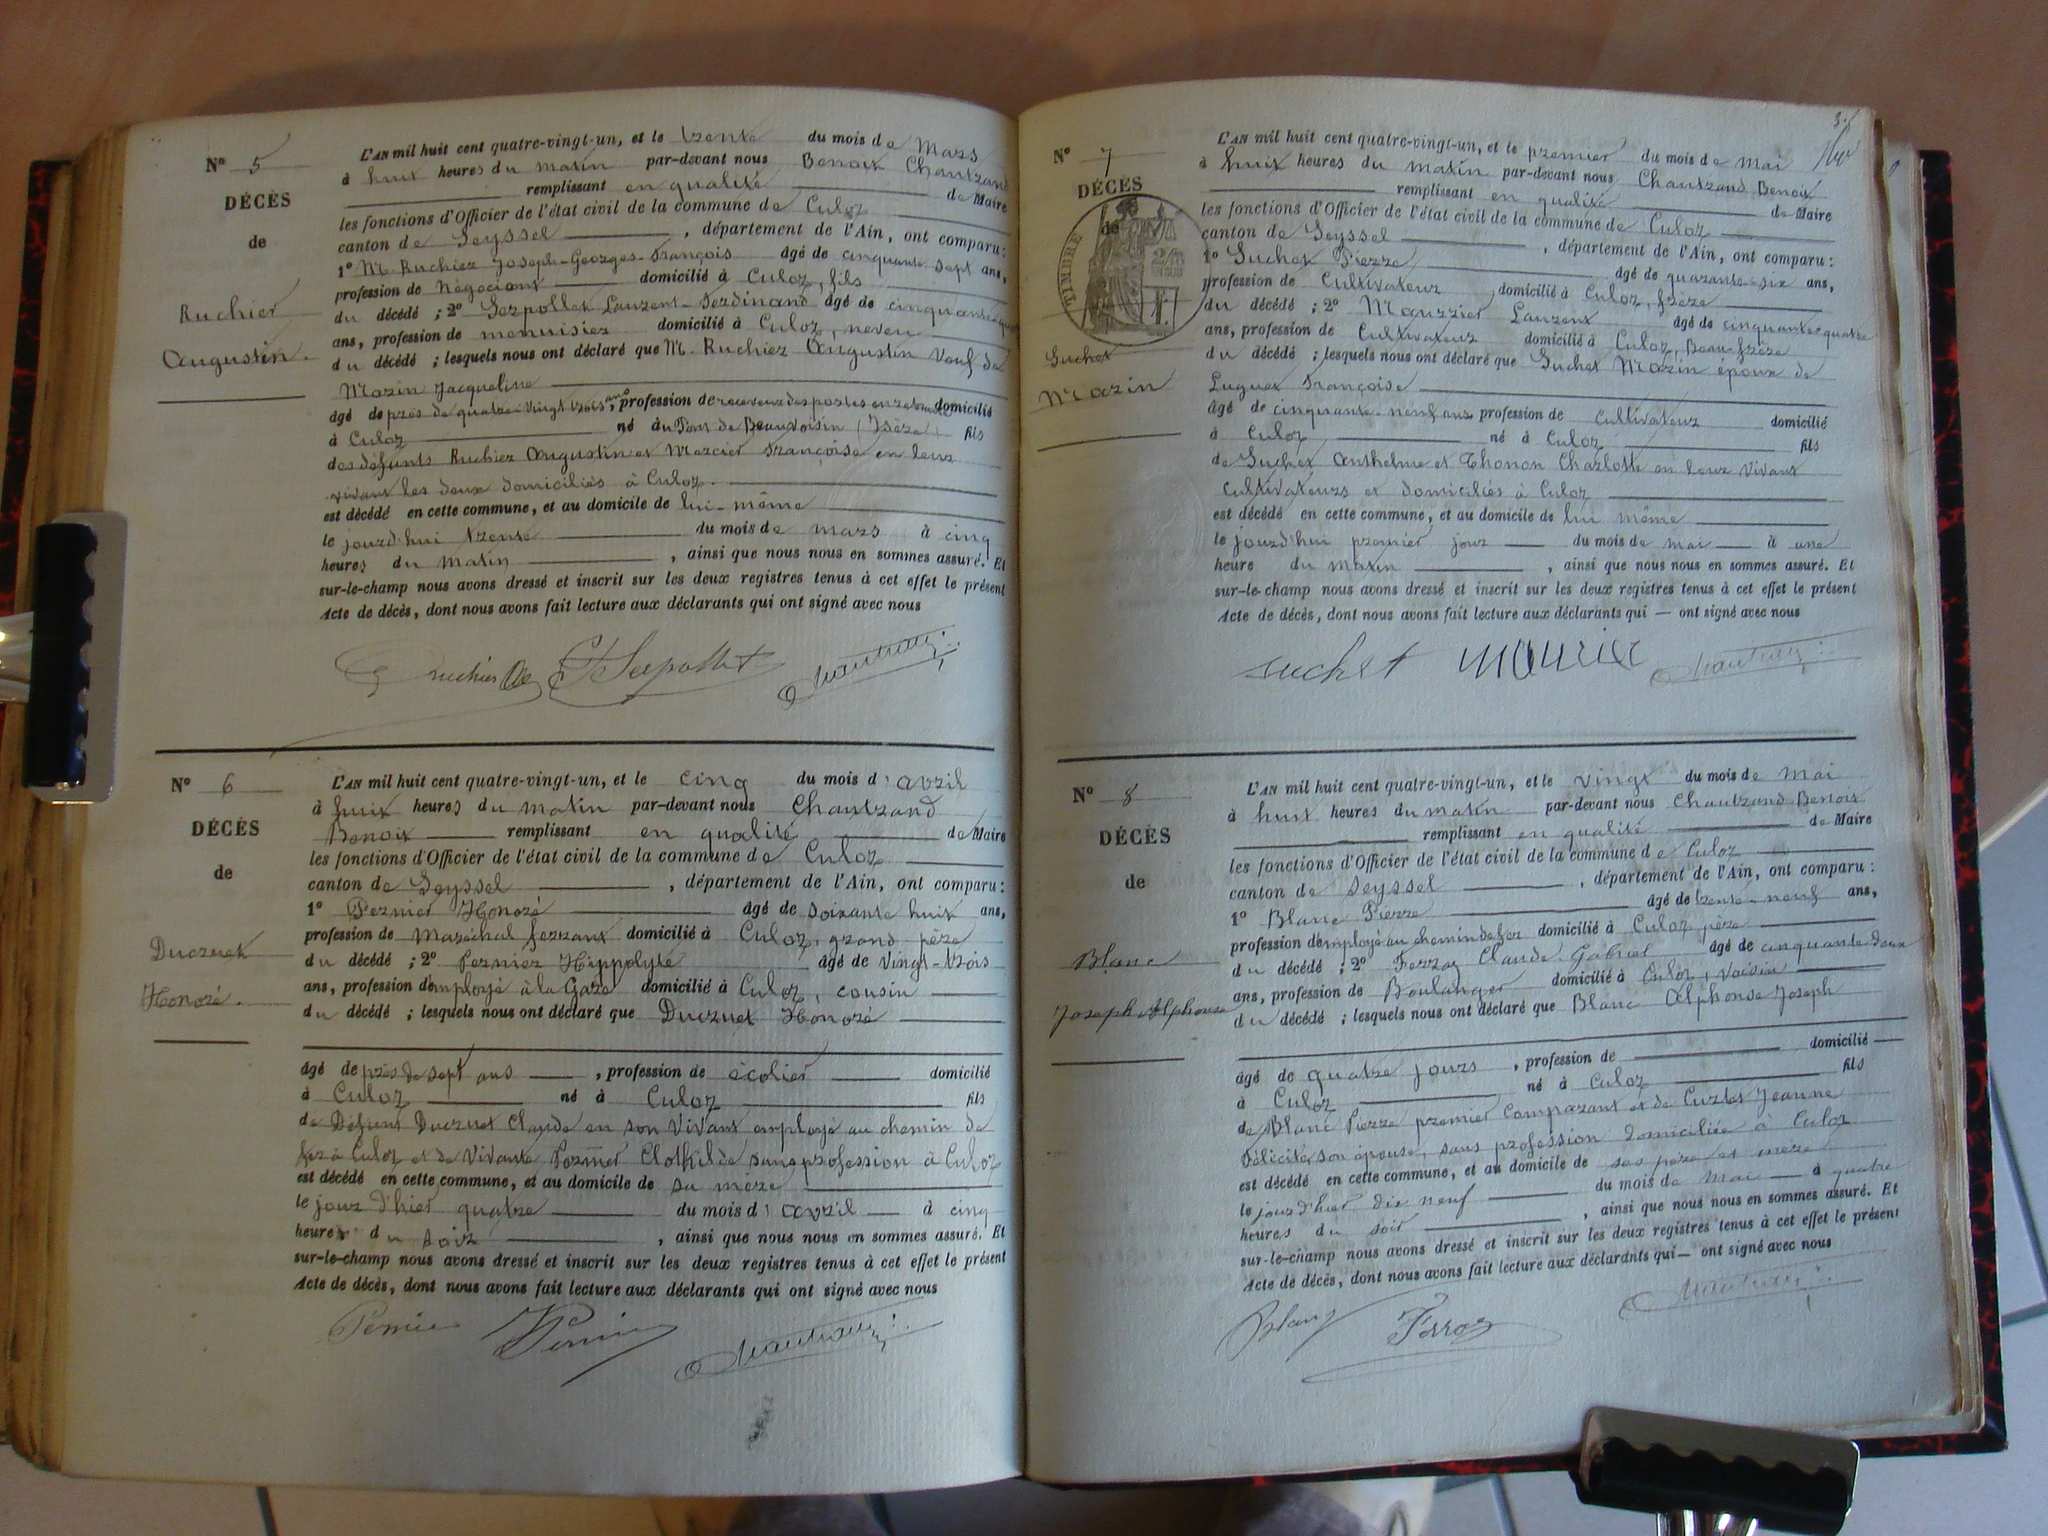 N° 5
DÉCÈS
de
Ruchier
Augustin.
L'AN mil huit cent quatre-vingt-un, et le trente du mois de Mars
à huit heures du matin par-devant nous Benoit Chautrand
remplissant en qualité de Maire
les fonctions d'Officier de l'état civil de la commune de Culoz
canton de Seyssel, département de l'Ain, ont comparu:
1° M. Ruchier Joseph-Georges-François âgé de cinquante sept ans,
profession de Négociant domicilié à Culoz, fils
du décédé ; 2° Serpollet Laurent-Ferdinand âgé de cinquante
ans, profession de menuisier domicilié à Culoz, neveu
du décédé ; lesquels nous ont déclaré que M. Ruchier Augustin Veuf de
Marin Jacqueline
âgé de près de quatre-vingt trois ans, profession de receveur des postes en retraite domicilié
à Culoz né au Pont de Beauvoisin (Isère) fils
des défunts Ruchier Augustin et Mercier Françoise en leur
vivant les deux domiciliés à Culoz.
est décédé en cette commune, et au domicile de lui-même
le jourd'hui trente du mois de mars à cinq
heures du matin, ainsi que nous nous en sommes assuré. Et
sur-le-champ nous avons dressé et inscrit sur les deux registres tenus à cet effet le présent
Acte de décès, dont nous avons fait lecture aux déclarants qui ont signé avec nous
Ruchier Serpollet Chautrand
N° 6
DÉCÈS
de
Ducruet
Honoré.
L'AN mil huit cent quatre-vingt-un, et le cinq du mois d'avril
à huit heures du matin par-devant nous Chautrand
Benoit remplissant en qualité de Maire
les fonctions d'Officier de l'état civil de la commune de Culoz
canton de Seyssel, département de l'Ain, ont comparu:
1° Pernier Honoré âgé de soixante huit ans,
profession de Maréchal ferrant domicilié à Culoz, grand père
du décédé ; 2° Pernier Hippolyte âgé de vingt-trois
ans, profession d'employé à la Gare domicilié à Culoz, cousin
du décédé ; lesquels nous ont déclaré que Ducruet Honoré
âgé de près de sept ans, profession de écolier domicilié
à Culoz né à Culoz fils
de Défunt Ducruet Claude en son vivant employé au chemin de
fer à Culoz et de vivante Pernier Clothilde sans profession à Culoz
est décédé en cette commune, et au domicile de sa mère
le jour d'hier quatre du mois d'avril à cinq
heures du soir, ainsi que nous nous en sommes assuré. Et
sur-le-champ nous avons dressé et inscrit sur les deux registres tenus à cet effet le présent
Acte de décès, dont nous avons fait lecture aux déclarants qui ont signé avec nous
Pernier H Pernier Chautrand
N° 7
DÉCÈS
de
TIMBRE
Suchet
Marin
L'AN mil huit cent quatre-vingt-un, et le premier du mois de mai
à huit heures du matin par-devant nous Chautrand Benoit
remplissant en qualité de Maire
les fonctions d'Officier de l'état civil de la commune de Culoz
canton de Seyssel, département de l'Ain, ont comparu:
1° Suchet Pierre âgé de quarante-six ans,
profession de Cultivateur domicilié à Culoz, frère
du décédé ; 2° Mourrier Laurent âgé de cinquante quatre
ans, profession de Cultivateur domicilié à Culoz, Beau-frère
du décédé ; lesquels nous ont déclaré que Suchet Marin époux de
Luguet Françoise
âgé de cinquante-neuf ans profession de cultivateur domicilié
à Culoz né à Culoz fils
de Suchet Anthelme et Thonon Charlotte en leur vivant
cultivateurs et domiciliés à Culoz
est décédé en cette commune, et au domicile de lui même
le jourd'hui premier jour du mois de mai à une
heure du matin, ainsi que nous nous en sommes assuré. Et
sur-le-champ nous avons dressé et inscrit sur les deux registres tenus à cet effet le présent
Acte de décès, dont nous avons fait lecture aux déclarants qui — ont signé avec nous
suchet Chautrand
N° 8
DÉCÈS
de
Blanc
Joseph Alphonse
L'AN mil huit cent quatre-vingt-un, et le vingt du mois de mai
à huit heures du matin par-devant nous Chautrand Benoit
remplissant en qualité de Maire
les fonctions d'Officier de l'état civil de la commune de Culoz
canton de Seyssel, département de l'Ain, ont comparu:
1° Blanc Pierre âgé de trente-neuf ans,
profession d'employé au chemin de fer domicilié à Culoz père
du décédé ; 2° Ferroz Claude-Gabriel âgé de cinquante-deux
ans, profession de Boulanger domicilié à Culoz, voisin
du décédé ; lesquels nous ont déclaré que Blanc Alphonse Joseph
âgé de quatre jours, profession de domicilié
à Culoz né à Culoz fils
de Blanc Pierre premier comparant et de Curtet Jeanne
Félicité, son épouse, sans profession domiciliée à Culoz
est décédé en cette commune, et au domicile de ses père et mère
le jour d'hier dix neuf du mois de mai à quatre
heures du soir, ainsi que nous nous en sommes assuré. Et
sur-le-champ nous avons dressé et inscrit sur les deux registres tenus à cet effet le présent
Acte de décès, dont nous avons fait lecture aux déclarants qui — ont signé avec nous
Blanc Ferroz Chautrand